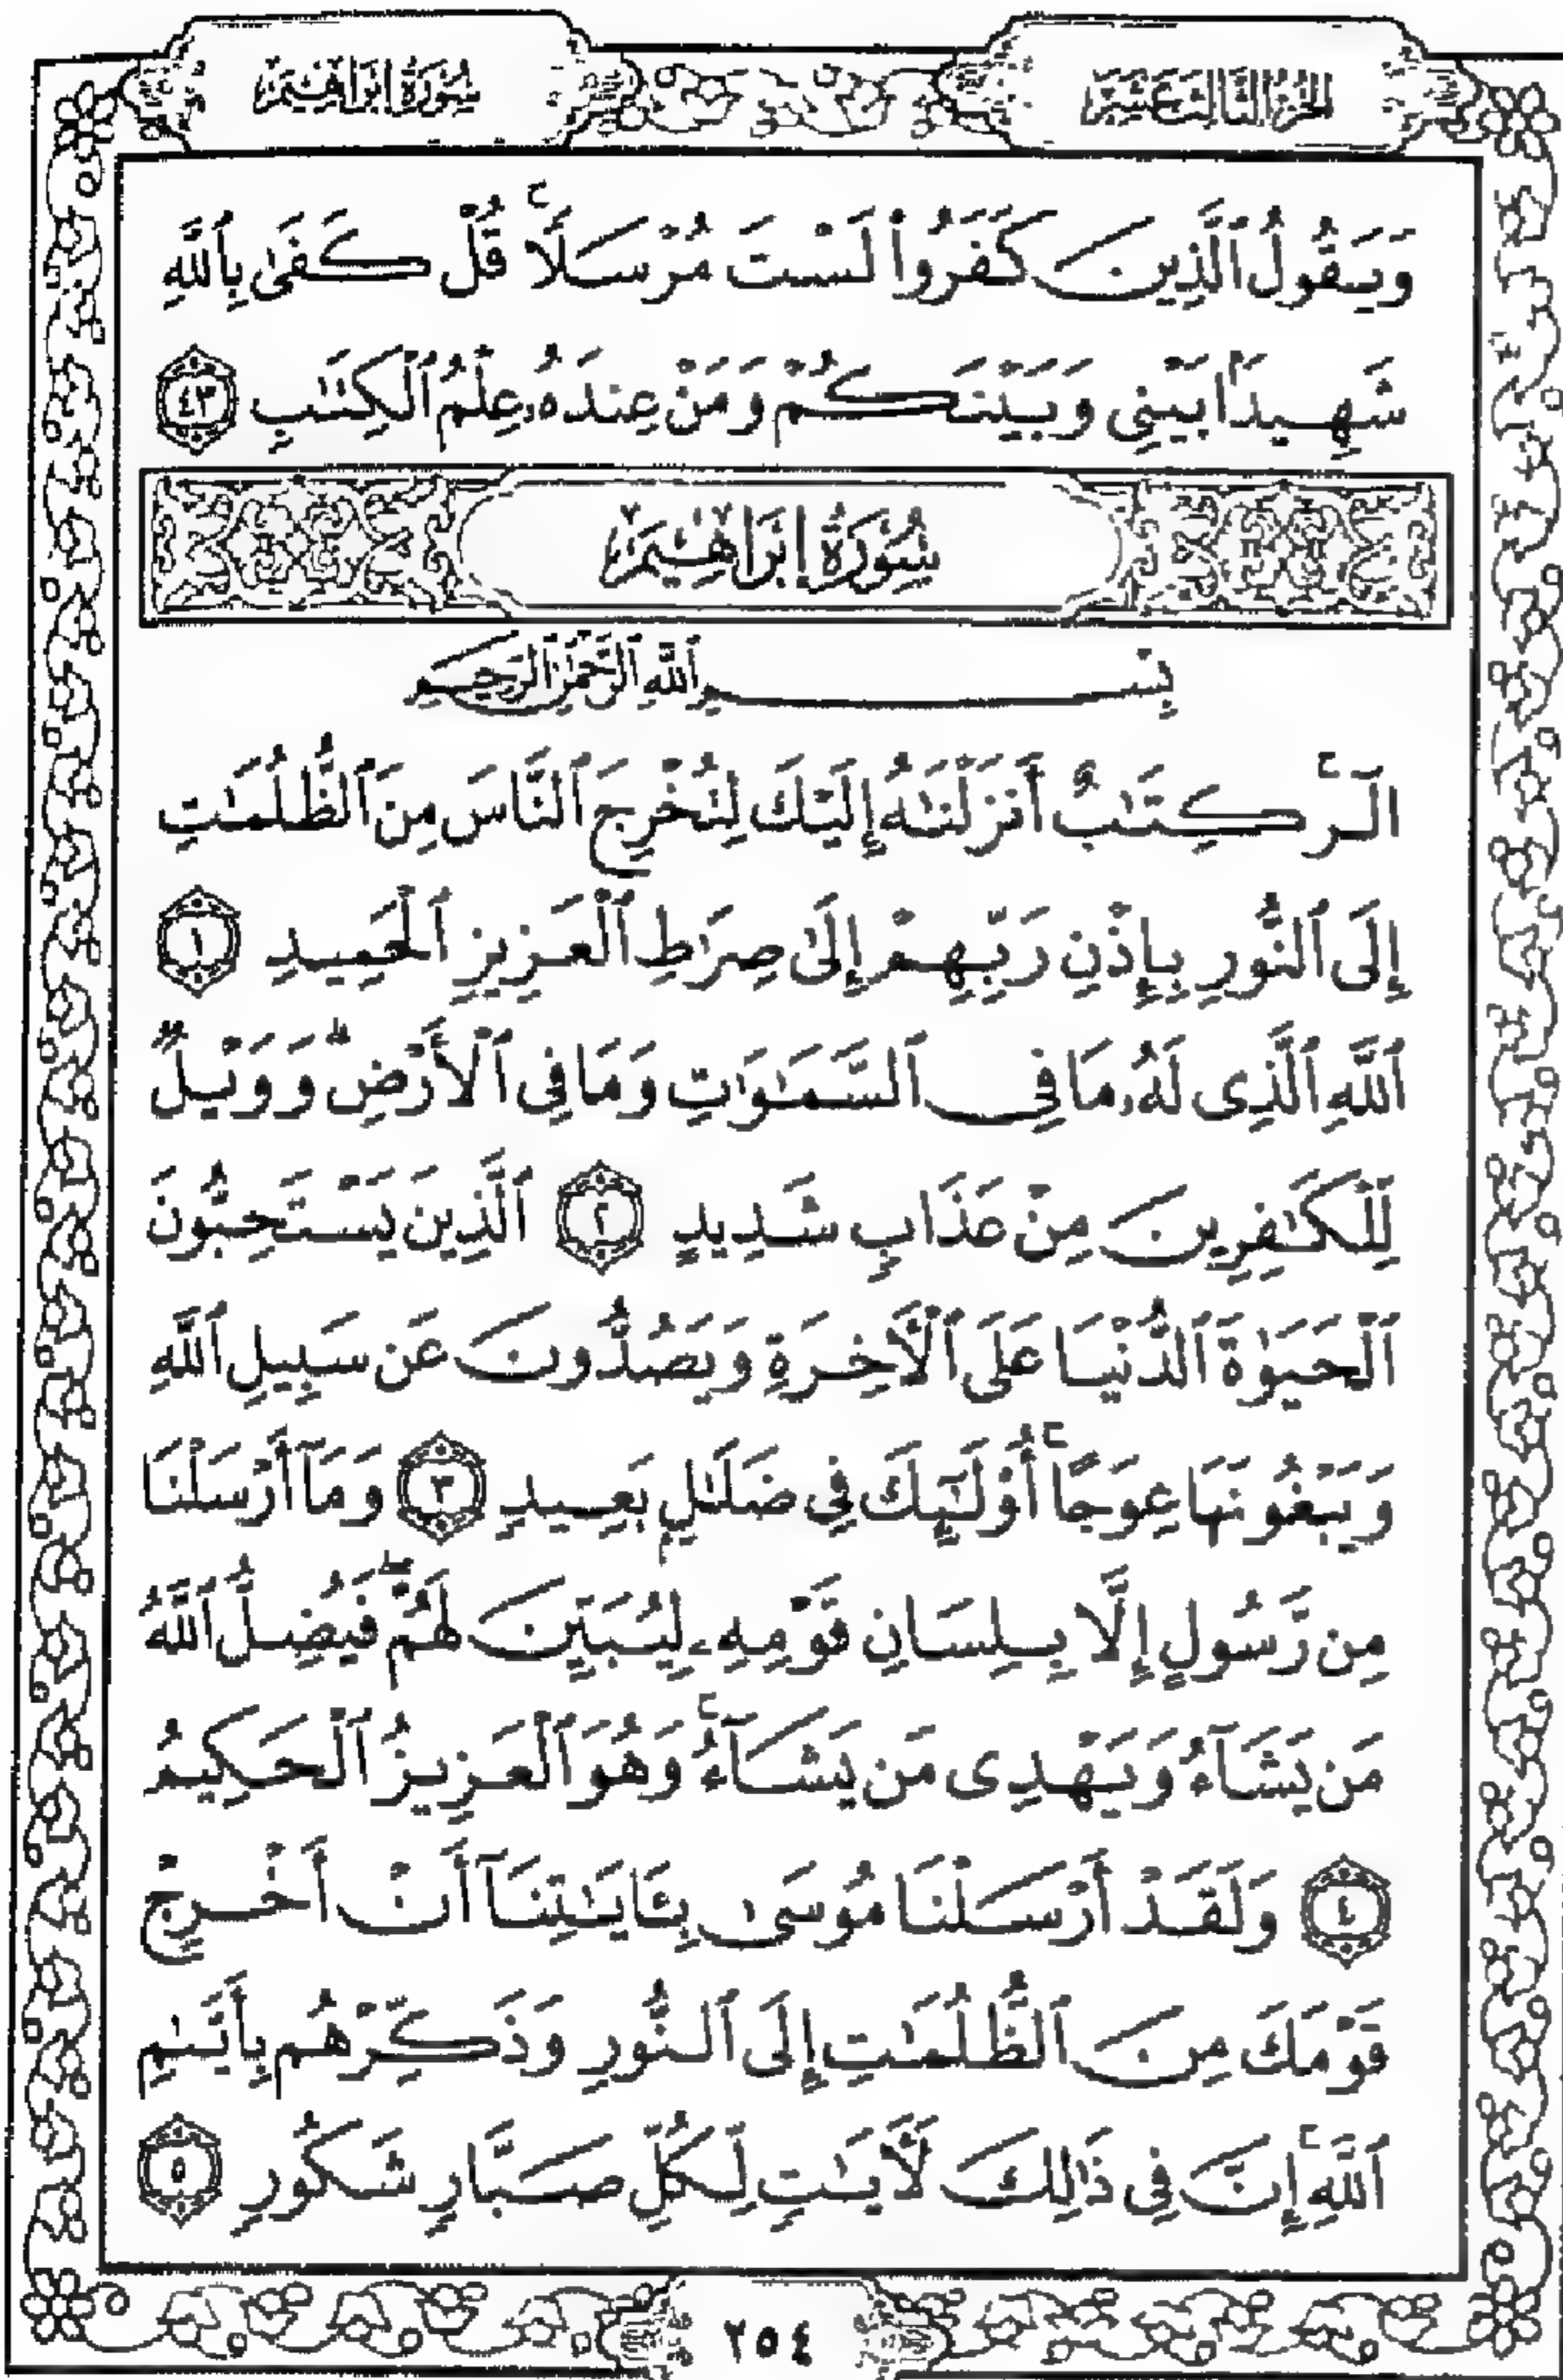 الجزء الثالث عشر
سورة إبراهيم
وَيَقُولُ ٱلَّذِينَ كَفَرُوا۟ لَسْتَ مُرْسَلًا ۚ قُلْ كَفَىٰ بِٱللَّهِ
شَهِيدًۢا بَيْنِى وَبَيْنَكُمْ وَمَنْ عِندَهُۥ عِلْمُ ٱلْكِتَٰبِ ٤٣
سُورَةُ إِبْرَاهِيمَ
بِسْمِ ٱللَّهِ ٱلرَّحْمَٰنِ ٱلرَّحِيمِ
الٓر ۚ كِتَٰبٌ أَنزَلْنَٰهُ إِلَيْكَ لِتُخْرِجَ ٱلنَّاسَ مِنَ ٱلظُّلُمَٰتِ
إِلَى ٱلنُّورِ بِإِذْنِ رَبِّهِمْ إِلَىٰ صِرَٰطِ ٱلْعَزِيزِ ٱلْحَمِيدِ ١
ٱللَّهِ ٱلَّذِى لَهُۥ مَا فِى ٱلسَّمَٰوَٰتِ وَمَا فِى ٱلْأَرْضِ ۗ وَوَيْلٌ
لِّلْكَٰفِرِينَ مِنْ عَذَابٍ شَدِيدٍ ٢ ٱلَّذِينَ يَسْتَحِبُّونَ
ٱلْحَيَوٰةَ ٱلدُّنْيَا عَلَى ٱلْءَاخِرَةِ وَيَصُدُّونَ عَن سَبِيلِ ٱللَّهِ
وَيَبْغُونَهَا عِوَجًا ۚ أُو۟لَٰٓئِكَ فِى ضَلَٰلٍۭ بَعِيدٍ ٣ وَمَآ أَرْسَلْنَا
مِن رَّسُولٍ إِلَّا بِلِسَانِ قَوْمِهِۦ لِيُبَيِّنَ لَهُمْ ۖ فَيُضِلُّ ٱللَّهُ
مَن يَشَآءُ وَيَهْدِى مَن يَشَآءُ ۚ وَهُوَ ٱلْعَزِيزُ ٱلْحَكِيمُ
٤ وَلَقَدْ أَرْسَلْنَا مُوسَىٰ بِـَٔايَٰتِنَآ أَنْ أَخْرِجْ
قَوْمَكَ مِنَ ٱلظُّلُمَٰتِ إِلَى ٱلنُّورِ وَذَكِّرْهُم بِأَيَّىٰمِ
ٱللَّهِ ۚ إِنَّ فِى ذَٰلِكَ لَءَايَٰتٍ لِّكُلِّ صَبَّارٍ شَكُورٍ ٥
٢٥٤